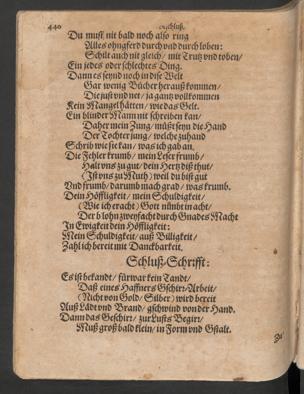 440 Bschluß.
Du must nit bald noch also ring
Alles ohngferd durch vnd durch loben:
Schilt auch nit gleich / mit Trutz vnd toben /
Ein jedes oder schlechtes Ding.
Dann es seynd noch in dise Welt
Gar wenig Bücher her auß kommen /
Die just vnd net / ja gantz vollkommen
Kein Mangel hätten / wie das Gelt.
Ein blinder Mann nit schreiben kan /
Daher mein Zung / müßt seyn die Hand
Der Tochter jung / welche zuhand
Schrib wie sie kan / was ich gab an.
Die Fehler krumb / mein Leser frumb /
Halt vns zu gut / dein Hertz diß thut /
(Ist vns zu Muth) weil du bist gut
Vnd frumb / darumb mach grad / was krumb.
Dein Höffligkeit / mein Schuldigkeit /
(Wie ich eracht) Gott nimbt in acht /
Der b lohn zweyfach durch Gnades Macht
In Ewigkeit dein Höffligkeit:
Mein Schuldigkeit / auß Billigkeit /
Zahl ich bereit mit Danckbarkeit.
Schluß-Schrifft:
Es ist bekandt / fürwar kein Tandt /
Daß eines Haffners Gschirr / Arbeit /
(Nicht von Gold / Silber) wird bereit
Auß Lädt vnd Brand / gschwind von der Hand.
Dann das Geschirr / zur Lusts Begir /
Muß groß bald klein / in Form vnd Gstalt.